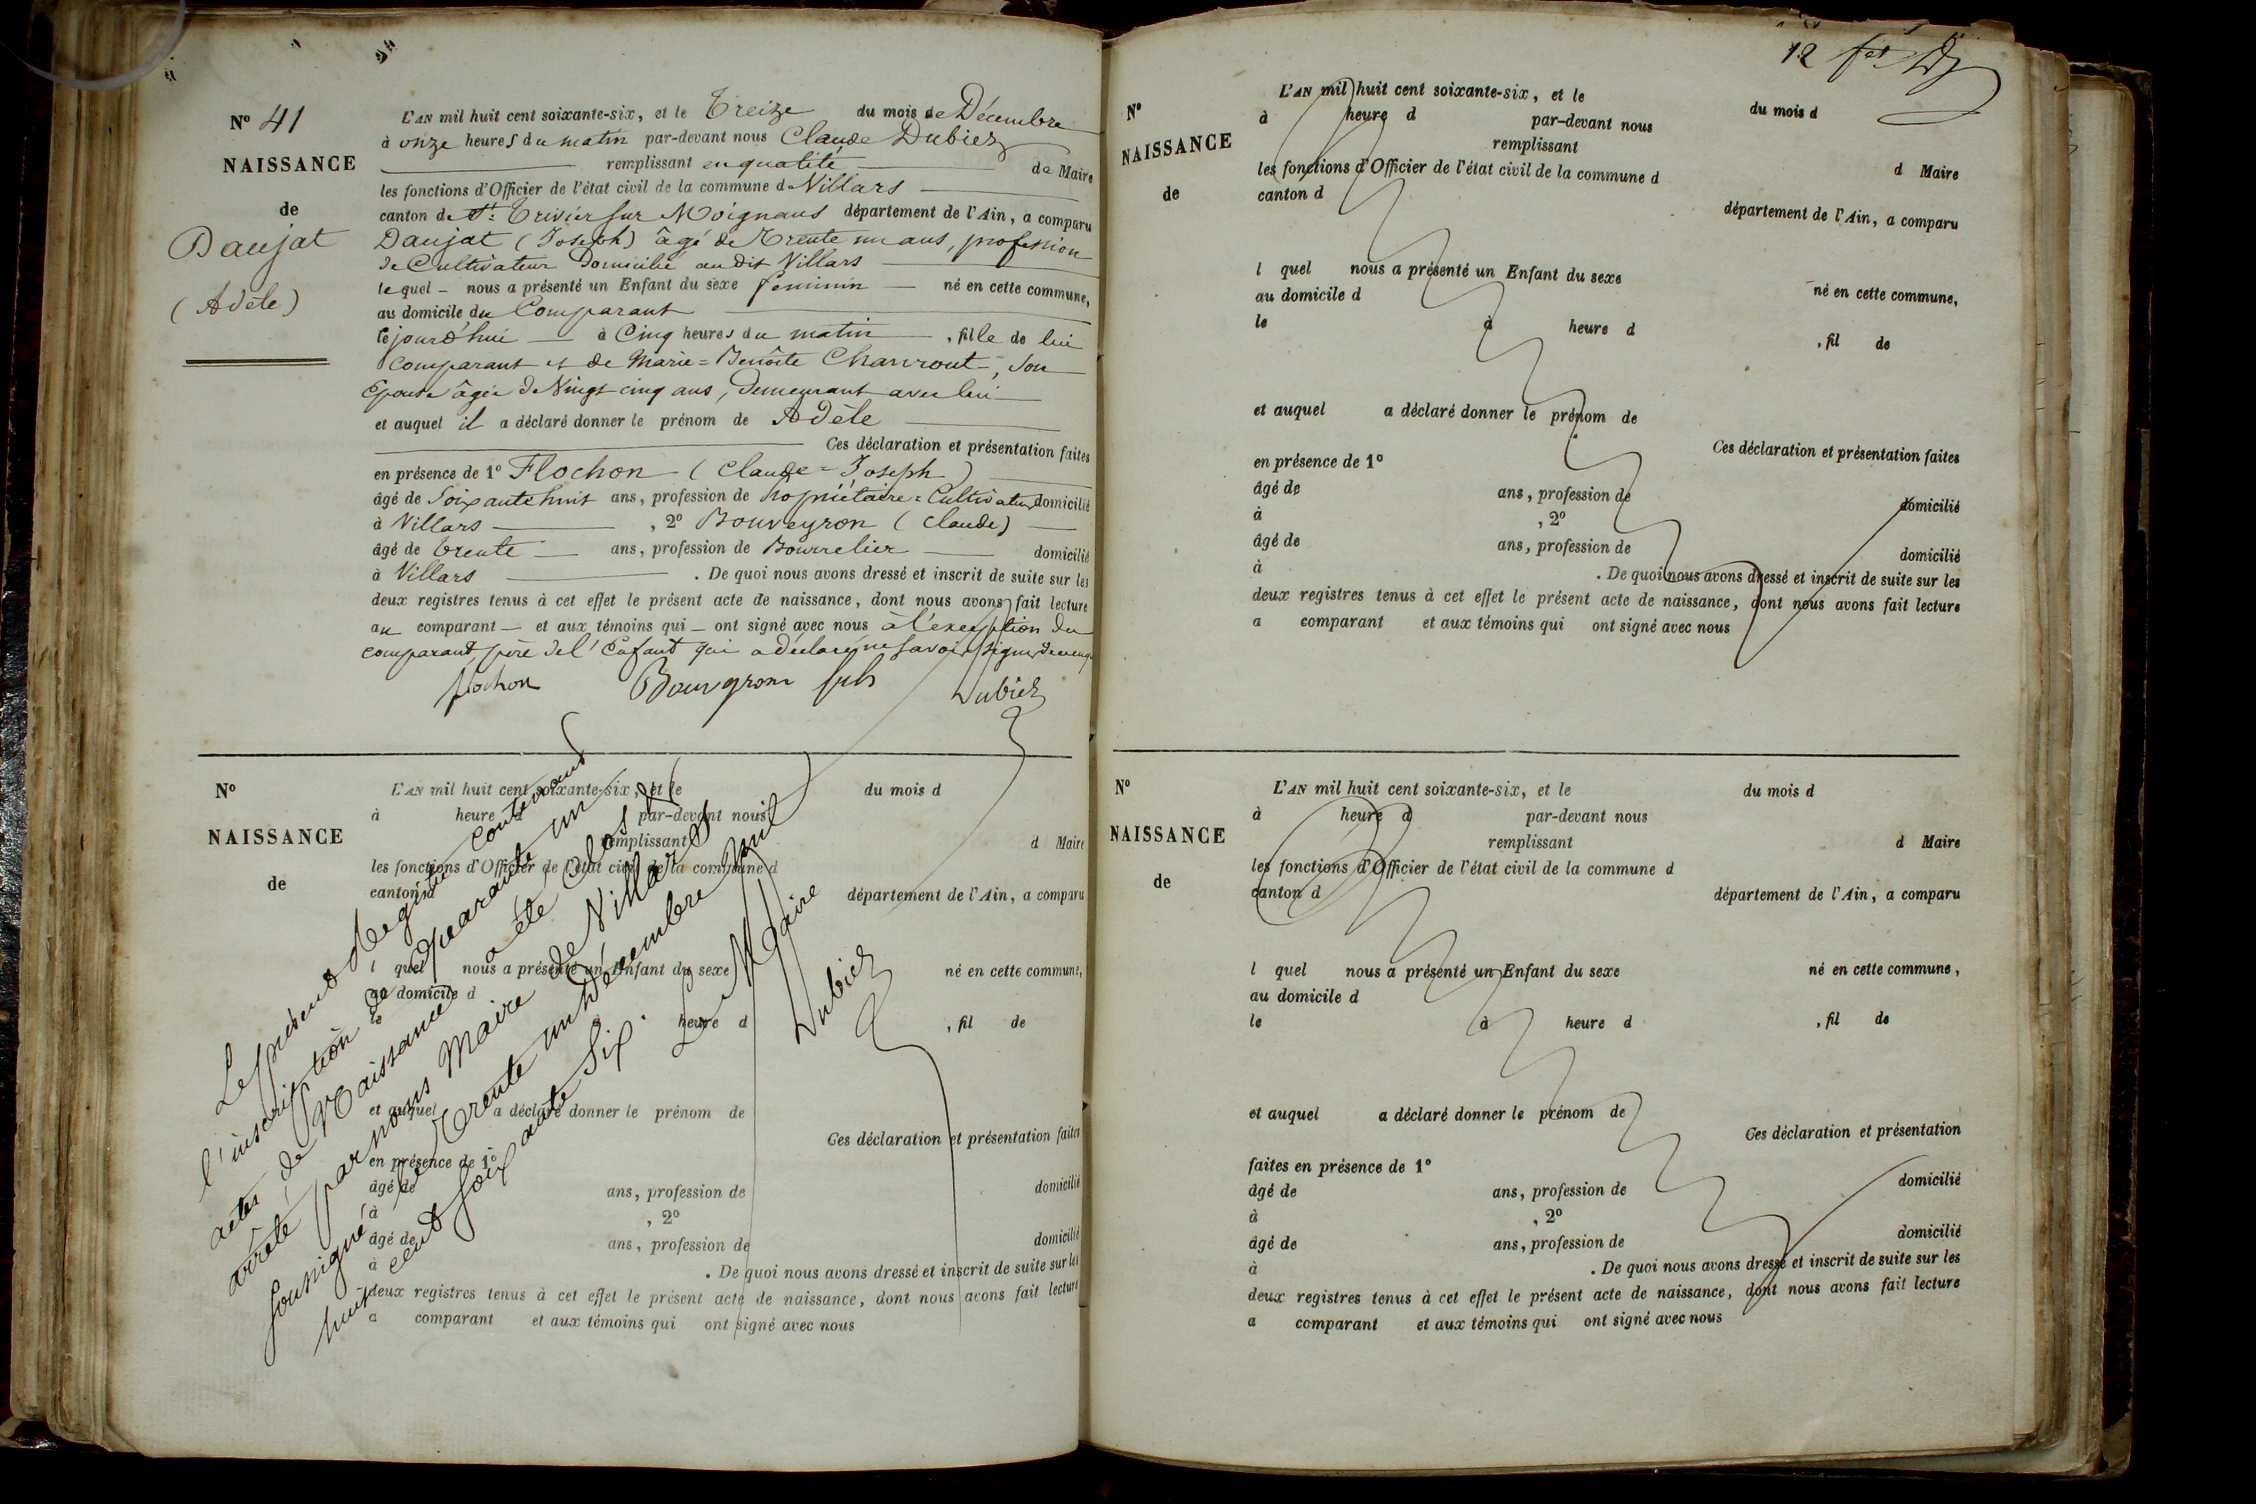 Nº 41
NAISSANCE
de
Daujat
(Adèle)
L'AN mil huit cent soixante-six, et le Treize du mois de Décembre
à onze heures du matin par-devant nous Claude Dubiez
remplissant en qualité de Maire
les fonctions d'Officier de l'état civil de la commune de Villars
canton de St. Trivier sur Moignans département de l'Ain, a comparu
Daujat (Joseph) âgé de Trente un ans, profession
de Cultivateur Domicilié au dit Villars
lequel nous a présenté un Enfant du sexe féminin né en cette commune,
au domicile du Comparant
le jourd'hui à Cinq heures du matin, fille de lui
comparant et de Marie=Benôite Charvrout, son
Epouse âgée de Vingt cinq ans, Demeurant avec lui
et auquel il a déclaré donner le prénom de Adèle
Ces déclaration et présentation faites
en présence de 1º Flochon (Claude=Joseph)
âgé de Soixante huit ans, profession de propriétaire=Cultivateur domicilié
à Villars, 2º Bouveyron (Claude)
âgé de trente ans, profession de Bourrelier domicilié
à Villars. De quoi nous avons dressé et inscrit de suite sur les
deux registres tenus à cet effet le présent acte de naissance, dont nous avons fait lecture
au comparant et aux témoins qui ont signé avec nous à l'exception du
comparant père de l'Enfant qui a déclaré ne savoir signer
flochon Bouvyron Dubiez
Nº
NAISSANCE
de
L'AN mil huit cent soixante-six, et le du mois d
à heure d par-devant nous
remplissant d Maire
les fonctions d'Officier de l'état civil de la commune d
canton d département de l'Ain, a comparu
l quel nous a présenté un Enfant du sexe né en cette commune,
au domicile d
le heure d, fil de
et auquel a déclaré donner le prénom de
Ces déclaration et présentation faites
en présence de 1º
âgé de ans, profession de domicilié
à, 2º
âgé de ans, profession de domicilié
à. De quoi nous avons dressé et inscrit de suite sur les
deux registres tenus à cet effet le présent acte de naissance, dont nous avons fait lecture
a comparant et aux témoins qui ont signé avec nous
Le présent Registre contenant
l'inscription de Quarante un
actes de Naissance a été clos et
arrêté par nous Maire de Villars
soussigné, le Trente un Décembre mil
huit cent soixante Six.
Le Maire
Dubiez
12
Nº
NAISSANCE
de
L'AN mil huit cent soixante-six, et le du mois d
à heure d par-devant nous
remplissant d Maire
les fonctions d'Officier de l'état civil de la commune d
canton d département de l'Ain, a comparu
l quel nous a présenté un Enfant du sexe né en cette commune,
au domicile d
le à heure d, fil de
et auquel a déclaré donner le prénom de
Ces déclaration et présentation faites
en présence de 1º
âgé de ans, profession de domicilié
à, 2º
âgé de ans, profession de domicilié
à. De quoi nous avons dressé et inscrit de suite sur les
deux registres tenus à cet effet le présent acte de naissance, dont nous avons fait lecture
a comparant et aux témoins qui ont signé avec nous
Nº
NAISSANCE
de
L'AN mil huit cent soixante-six, et le du mois d
à heure d par-devant nous
remplissant d Maire
les fonctions d'Officier de l'état civil de la commune d
canton d département de l'Ain, a comparu
l quel nous a présenté un Enfant du sexe né en cette commune,
au domicile d
le à heure d, fil de
et auquel a déclaré donner le prénom de
Ces déclaration et présentation
faites en présence de 1º
âgé de ans, profession de domicilié
à, 2º
âgé de ans, profession de domicilié
à. De quoi nous avons dressé et inscrit de suite sur les
deux registres tenus à cet effet le présent acte de naissance, dont nous avons fait lecture
a comparant et aux témoins qui ont signé avec nous